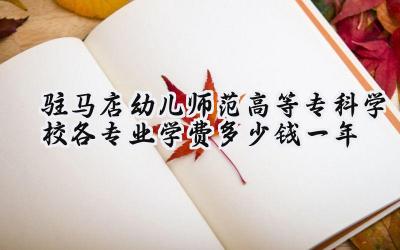 驻马店幼儿师范高等专科学
校各专业学费多少钱一年